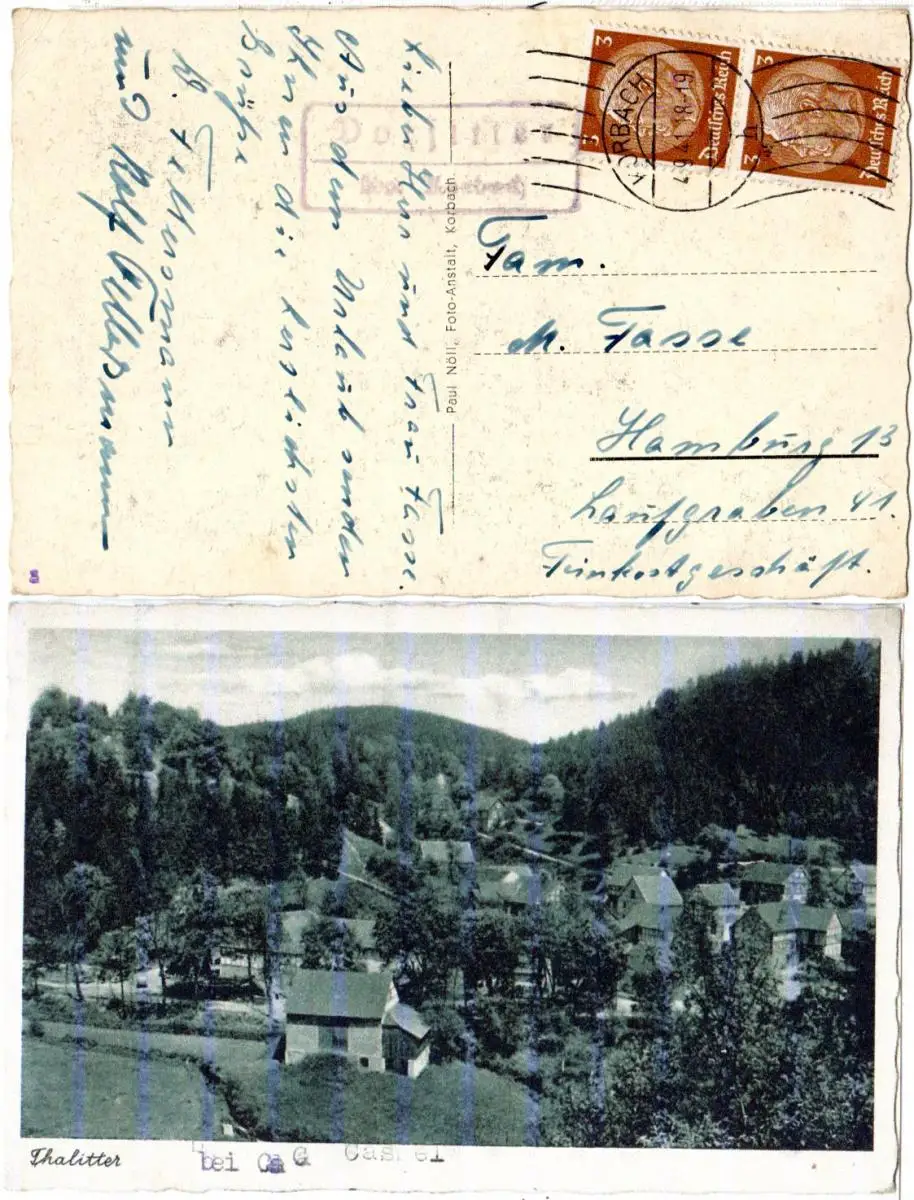 Liebe Herr und Frau Fasse.
Aus dem Urlaub senden
Ihnen die herzlichsten
Grüße
W. Fettersmann
und Rolf Fettersmann
Paul Nöll, Foto-Anstalt, Korbach
3
3
Deutsches Reich
3
3
Deutsches Reich
KORBACH
4.9.41.18-19
Fam.
M. Fasse
Hamburg 13
Laufgraben 41.
Feinkostgeschäft.
Thalitter
bei
Cassel